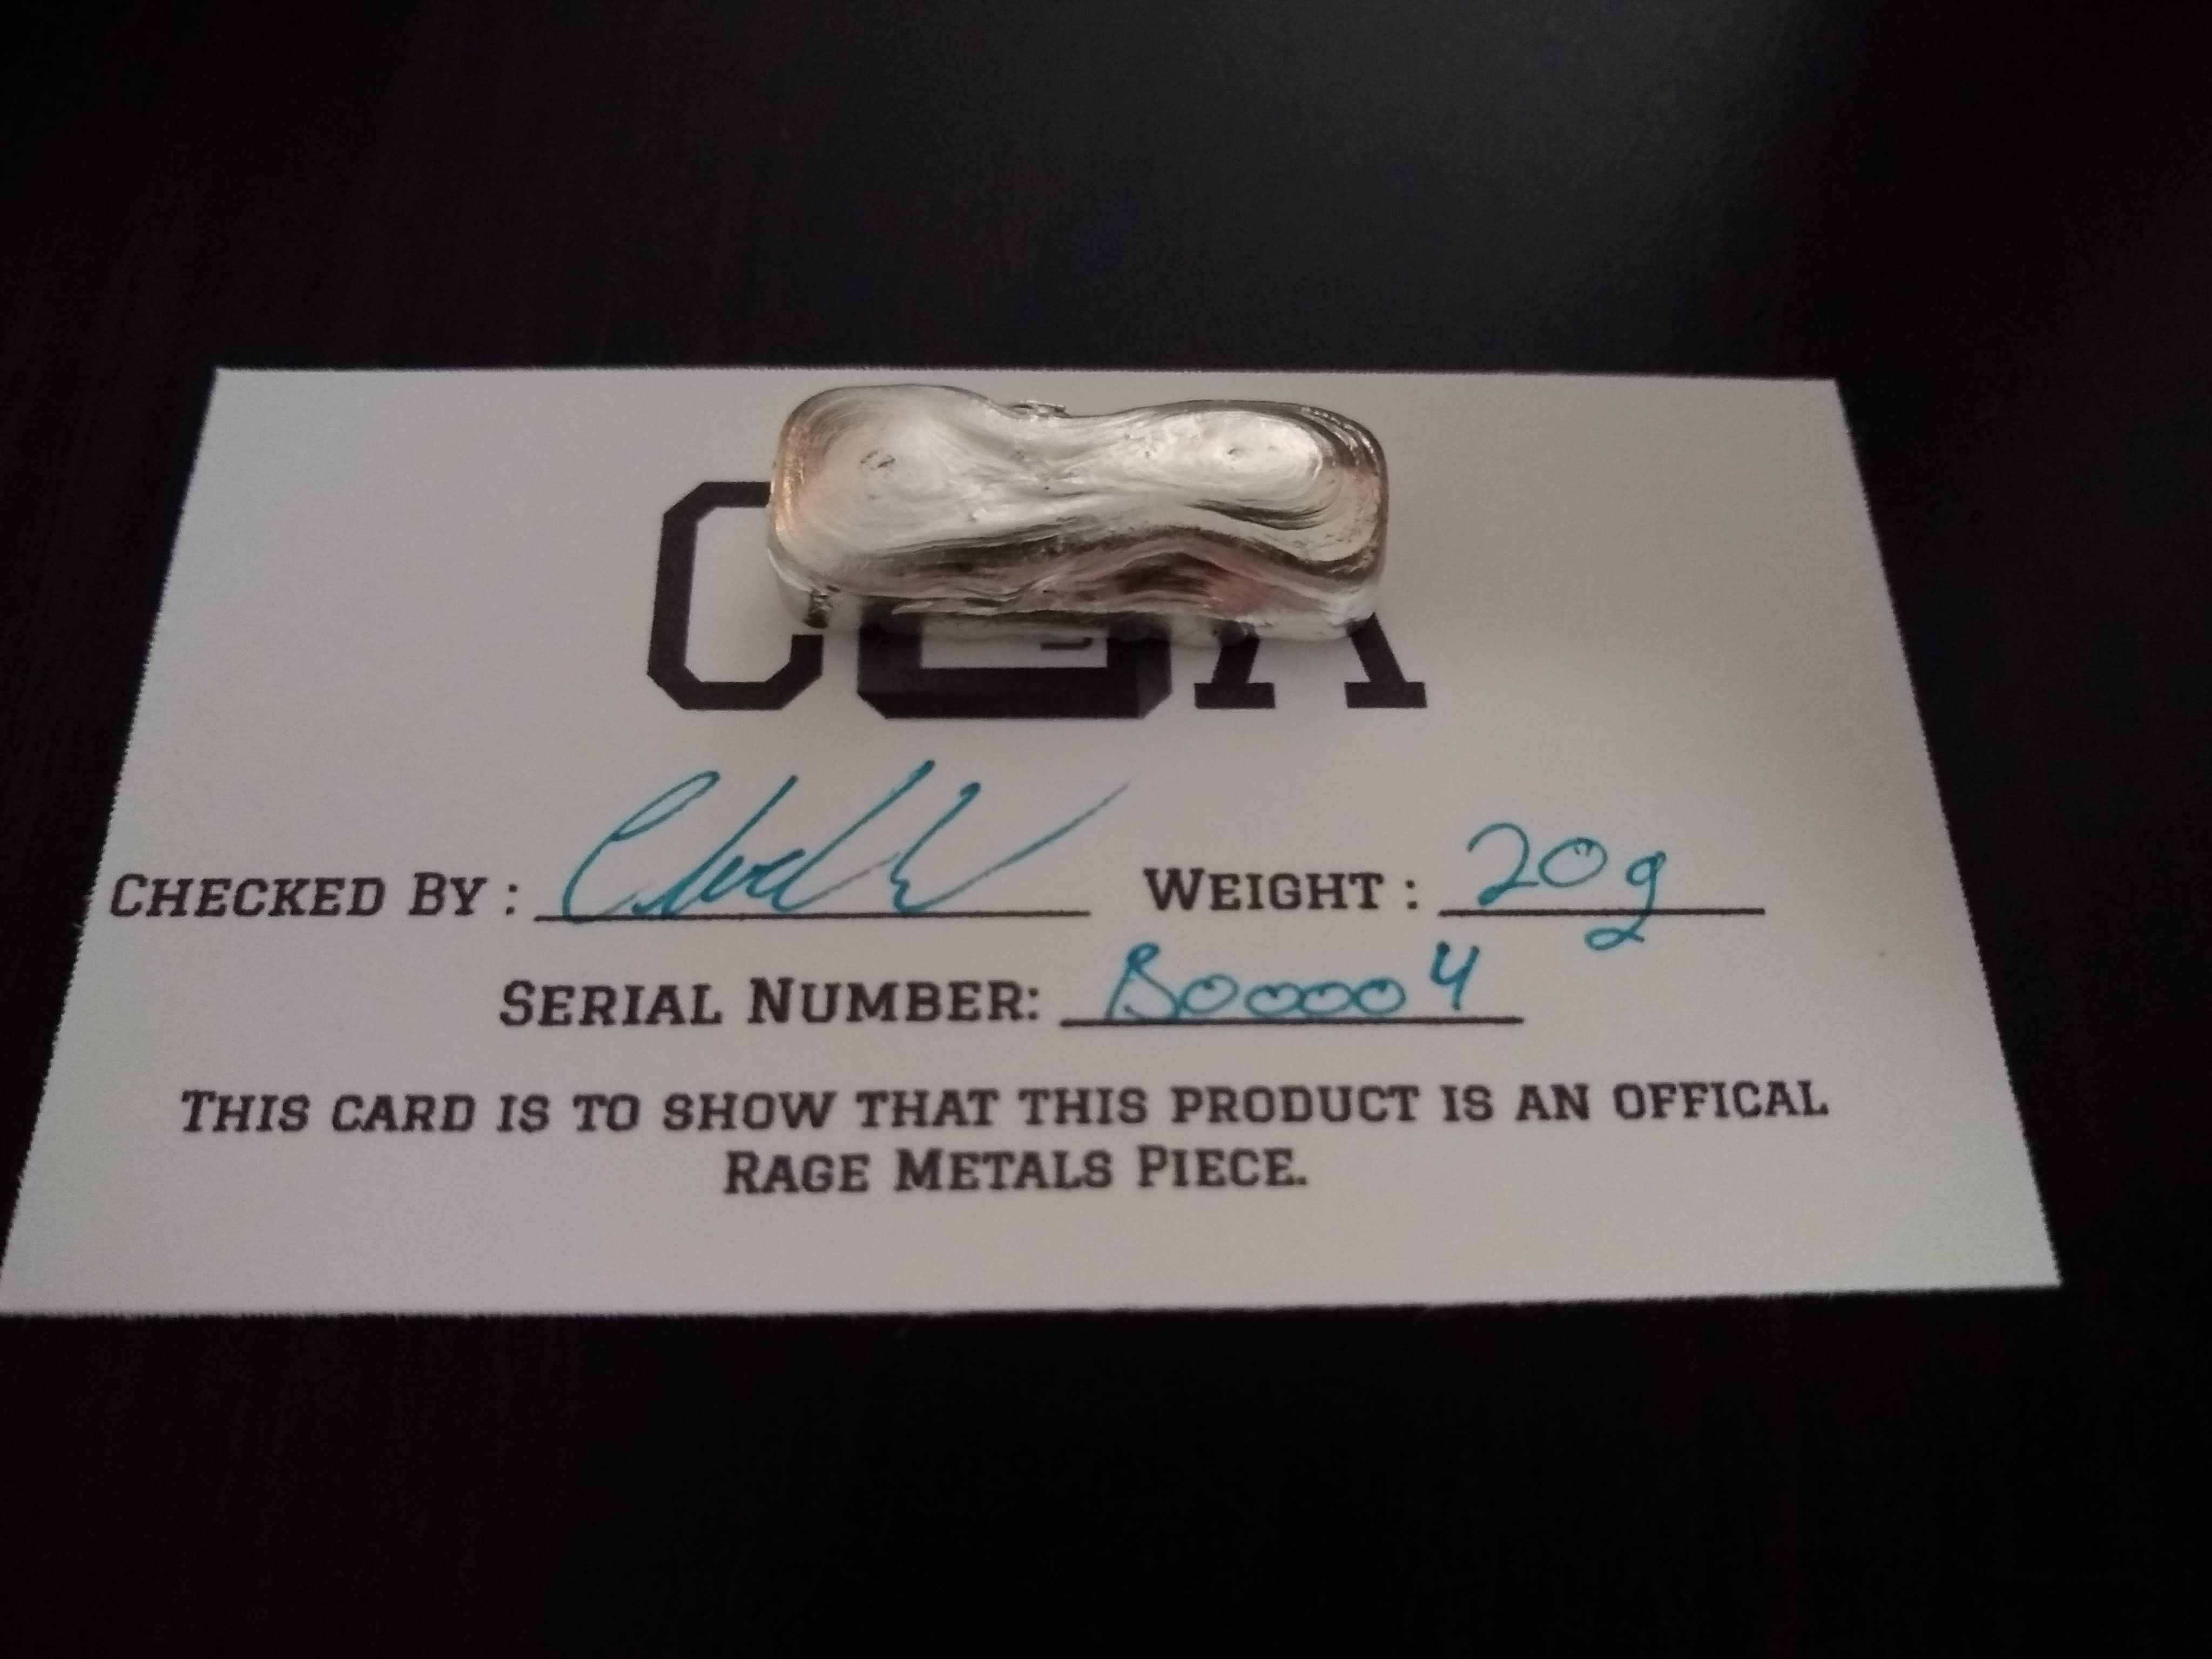 COA
CHECKED BY : WEIGHT : 20g
SERIAL NUMBER: B00004
THIS CARD IS TO SHOW THAT THIS PRODUCT IS AN OFFICAL
RAGE METALS PIECE.